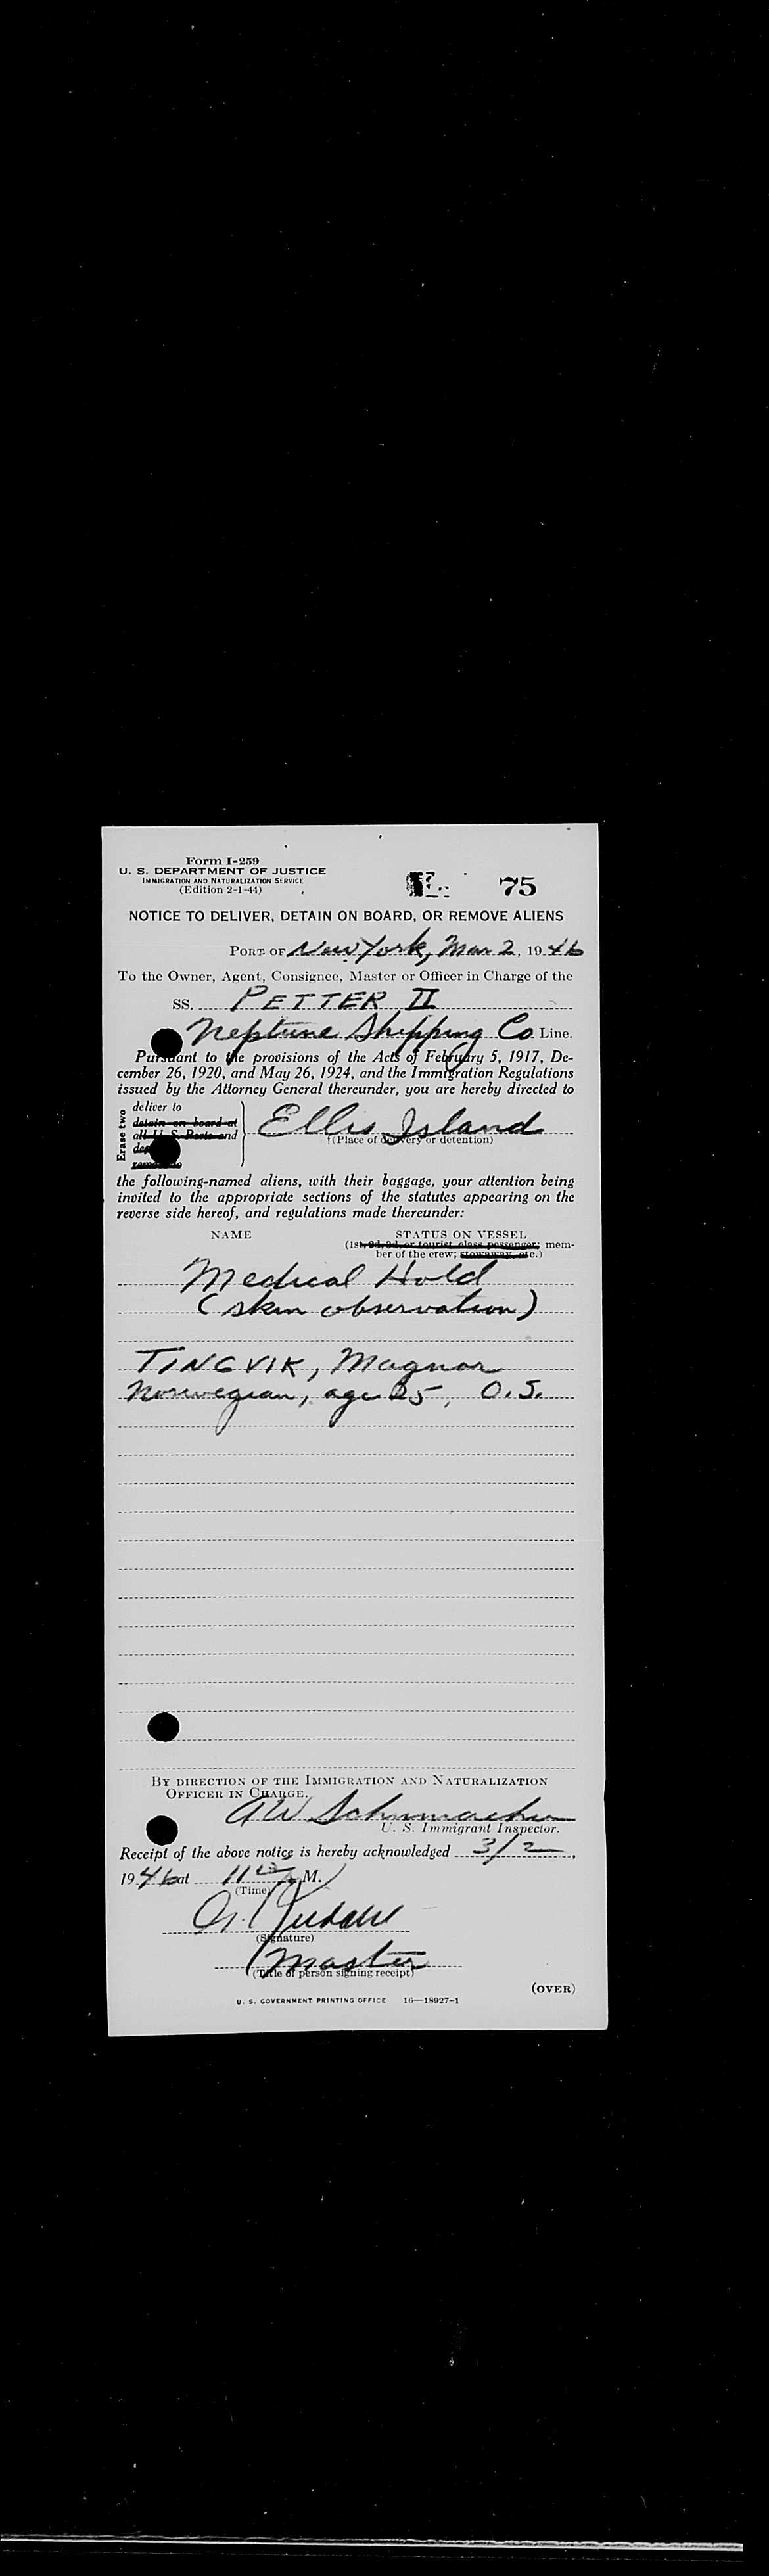 Form I-259
U. S. DEPARTMENT OF JUSTICE
IMMIGRATION AND NATURALIZATION SERVICE
(Edition 2-1-44)
75
NOTICE TO DELIVER, DETAIN ON BOARD, OR REMOVE ALIENS
PORT OF New York, Mar 2, 1946
To the Owner, Agent, Consignee, Master or Officer in Charge of the
SS. PETTER II
Neptune Shipping Co Line.
Pursuant to the provisions of the Acts of February 5, 1917, De-
cember 26, 1920, and May 26, 1924, and the Immigration Regulations
issued by the Attorney General thereunder, you are hereby directed to
Erase two
deliver to
detain on board at
all U. S. Ports and
Ellis Island
†(Place of delivery or detention)
the following-named aliens, with their baggage, your attention being
invited to the appropriate sections of the statutes appearing on the
reverse side hereof, and regulations made thereunder:
NAME STATUS ON VESSEL
(1st, 2d, 3d, or tourist class passenger; mem-
ber of the crew; stowaway, etc.)
Medical Hold
(skin observation)
TINGVIK, Magnar
Norwegian, age 25, O.S.
BY DIRECTION OF THE IMMIGRATION AND NATURALIZATION
OFFICER IN CHARGE.
A W Schumacher
U. S. Immigrant Inspector.
Receipt of the above notice is hereby acknowledged 3/2,
1946 at 11 M.
(Time)
(Signature)
Master
(Title of person signing receipt)
(OVER)
U. S. GOVERNMENT PRINTING OFFICE 16—18927-1